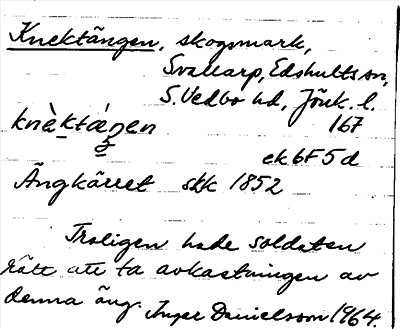 Knektängen, skogsmark,
Svallarp, Edshults sn,
S. Vedbo hd, Jönk. l.
knèktæ̀ŋen 167
ek 6F5d
Ängkärret skk 1852
Troligen hade soldaten
rätt att ta avkastningen av
denna äng. Inger Danielsson 1964.